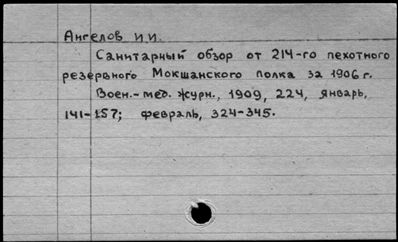 Ангелов И.И.
Санитарный обзор от 214-го пехотного
резервного Мокшанского полка за 1906 г.
Воен.-мед. журн., 1909, 224, январь,
141-157; февраль, 324-345.